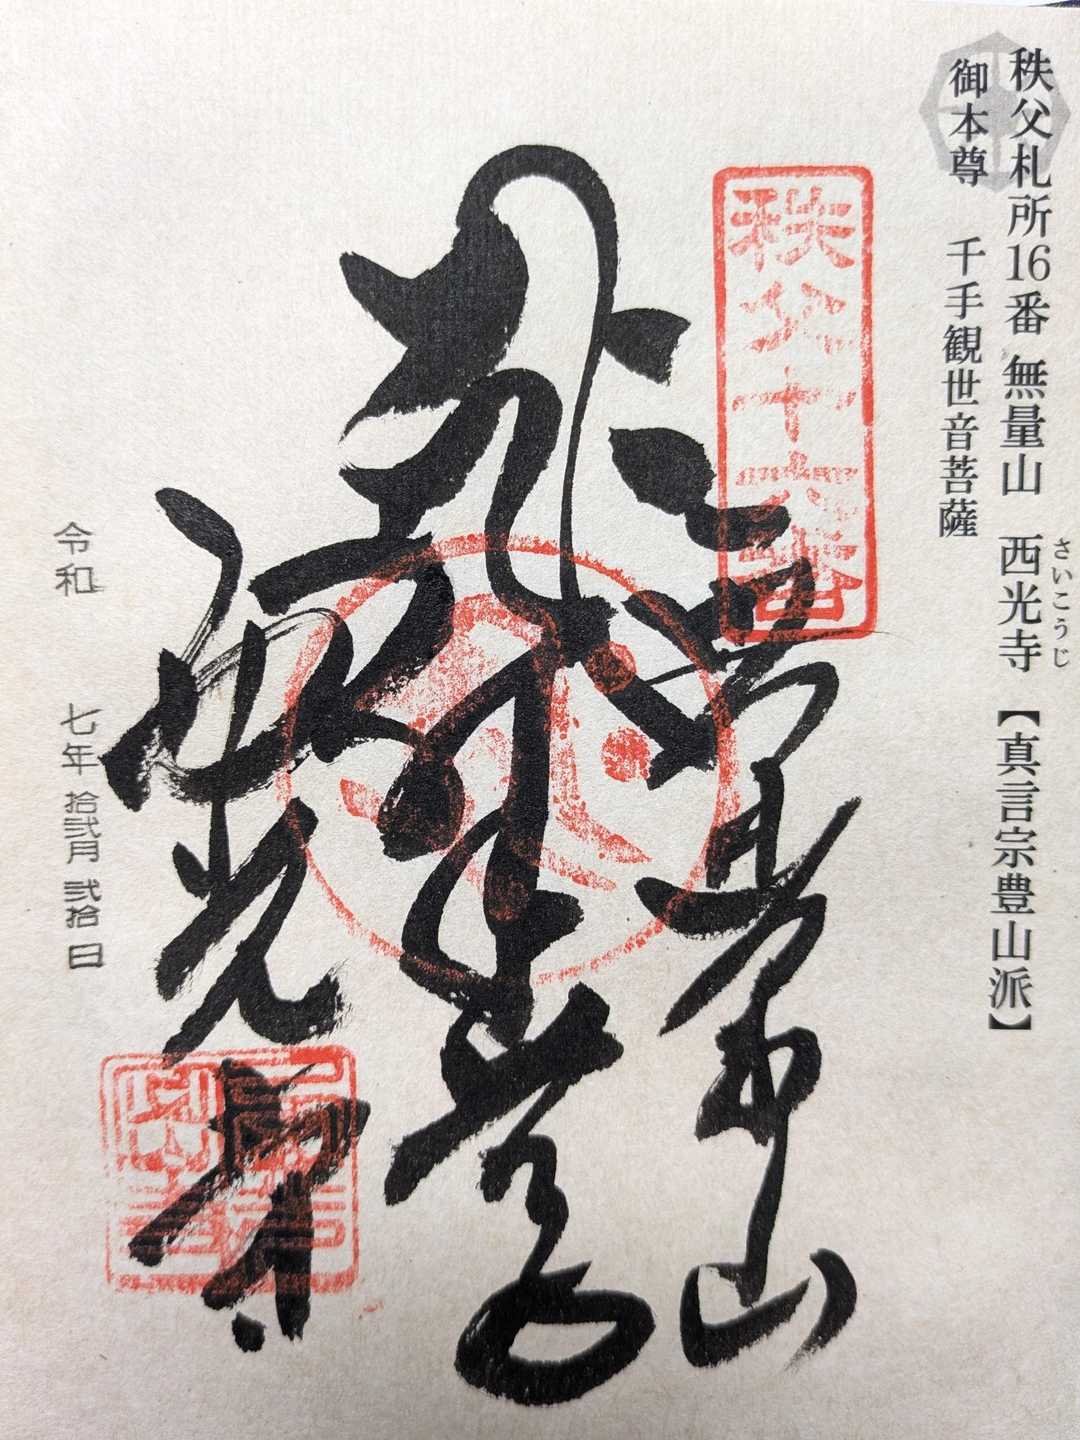 秩父札所16番 無量山 西光寺【真言宗豊山派】
さいこうじ
御本尊 千手観世音菩薩
秩父十六番
無量山
西光寺
令和 七年 拾弐月 弐拾日